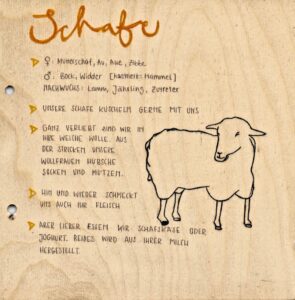 Schafe
♀: Mutterschaf, Au, Aue, Zibbe
♂: Bock, Widder [kastriert: Hammel]
Nachwuchs: Lamm, Jährling, Zutreter
Unsere Schafe kuscheln gerne mit uns
Ganz verliebt sind wir in
ihre weiche Wolle. Aus
der stricken unsere
Wollfrauen hübsche
Socken und Mützen.
Hin und wieder schmeckt
uns auch ihr Fleisch
Aber lieber essen wir Schafskäse oder
Joghurt. Beides wird aus ihrer Milch
hergestellt.